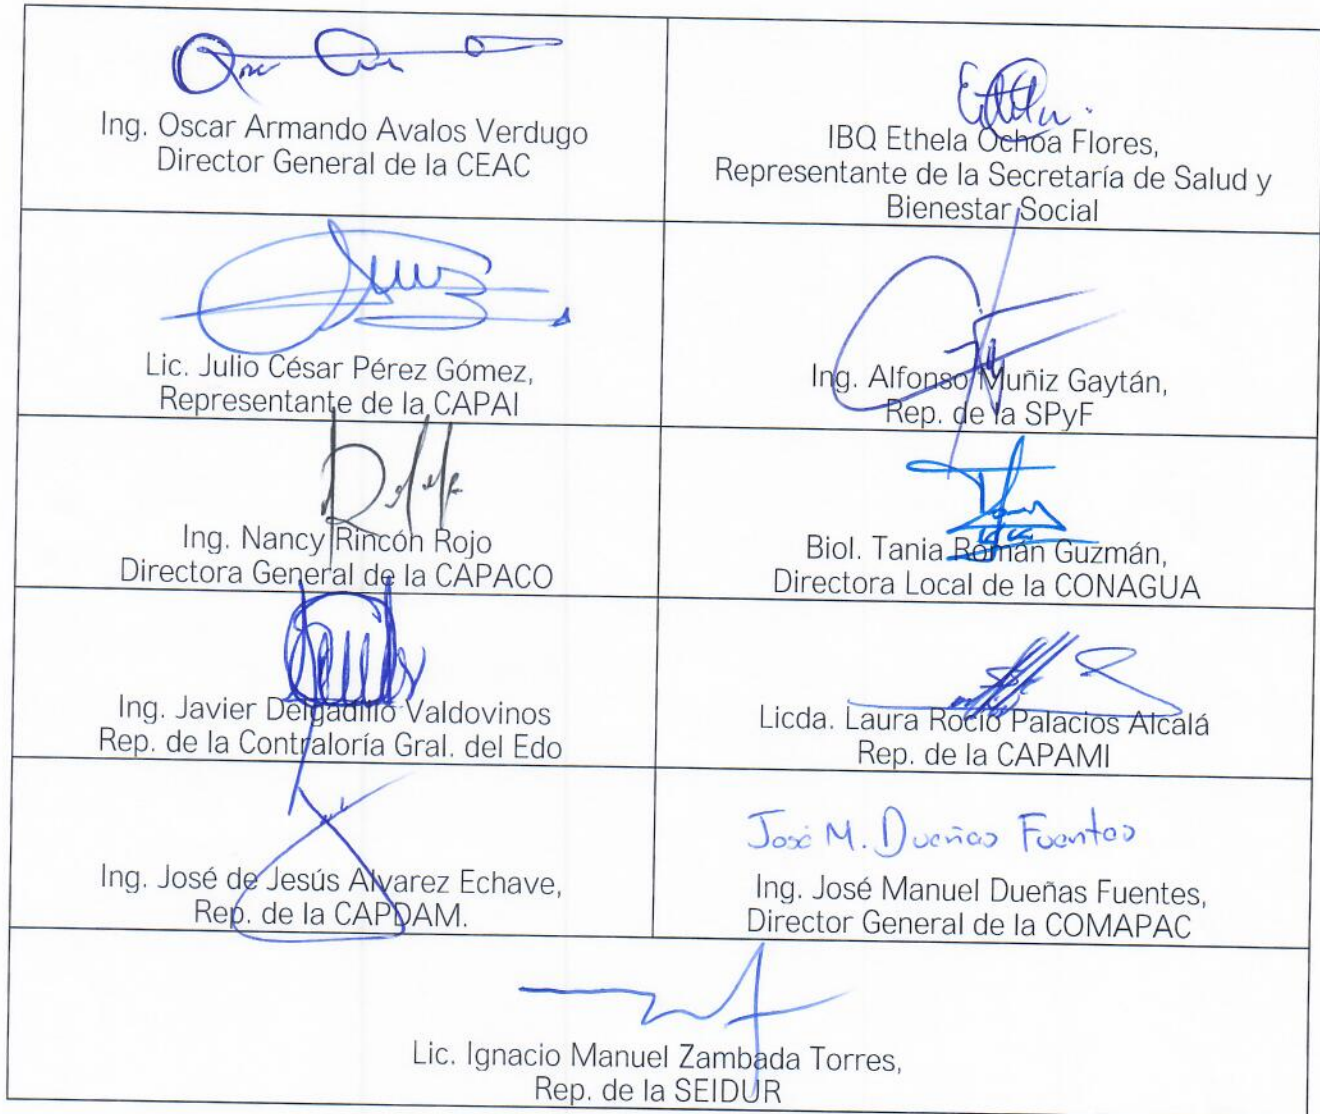 Ing. Oscar Armando Avalos Verdugo
Director General de la CEAC
IBQ Ethela Ochoa Flores,
Representante de la Secretaría de Salud y
Bienestar Social
Lic. Julio César Pérez Gómez,
Representante de la CAPAI
Ing. Alfonso Muñiz Gaytán,
Rep. de la SPyF
Ing. Nancy Rincón Rojo
Directora General de la CAPACO
Biol. Tania Román Guzmán,
Directora Local de la CONAGUA
Ing. Javier Delgadillo Valdovinos
Rep. de la Contraloría Gral. del Edo
Licda. Laura Rocío Palacios Alcalá
Rep. de la CAPAMI
Ing. José de Jesús Alvarez Echave,
Rep. de la CAPDAM.
José M. Dueñas Fuentes
Ing. José Manuel Dueñas Fuentes,
Director General de la COMAPAC
Lic. Ignacio Manuel Zambada Torres,
Rep. de la SEIDUR